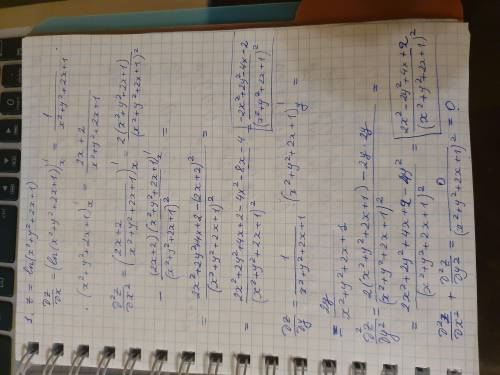 1. z = ln(x²+y²+2x+1)
∂z/∂x = (ln(x²+y²+2x+1))'ₓ = 1/(x²+y²+2x+1) ·
· (x²+y²+2x+1)'ₓ = (2x+2)/(x²+y²+2x+1)
∂²z/∂x² = ((2x+2)/(x²+y²+2x+1))'ₓ = 2(x²+y²+2x+1)/(x²+y²+2x+1)² −
− (2x+2)(x²+y²+2x+1)'ₓ/(x²+y²+2x+1)² =
= (2x²+2y²+4x+2−(2x+2)²)/(x²+y²+2x+1)² =
= (2x²+2y²+4x+2−4x²+8x−4)/(x²+y²+2x+1)² = (−2x²+2y²−4x−2)/(x²+y²+2x+1)²
∂z/∂y = 1/(x²+y²+2x+1) · (x²+y²+2x+1)'y =
= 2y/(x²+y²+2x+1)
∂²z/∂y² = (2(x²+y²+2x+1)−2y·2y)/(x²+y²+2x+1)² =
= (2x²+2y²+4x+2−4y²)/(x²+y²+2x+1)² = (2x²−2y²+4x+2)/(x²+y²+2x+1)²
∂²z/∂x² + ∂²z/∂y² = 0/(x²+y²+2x+1)² = 0